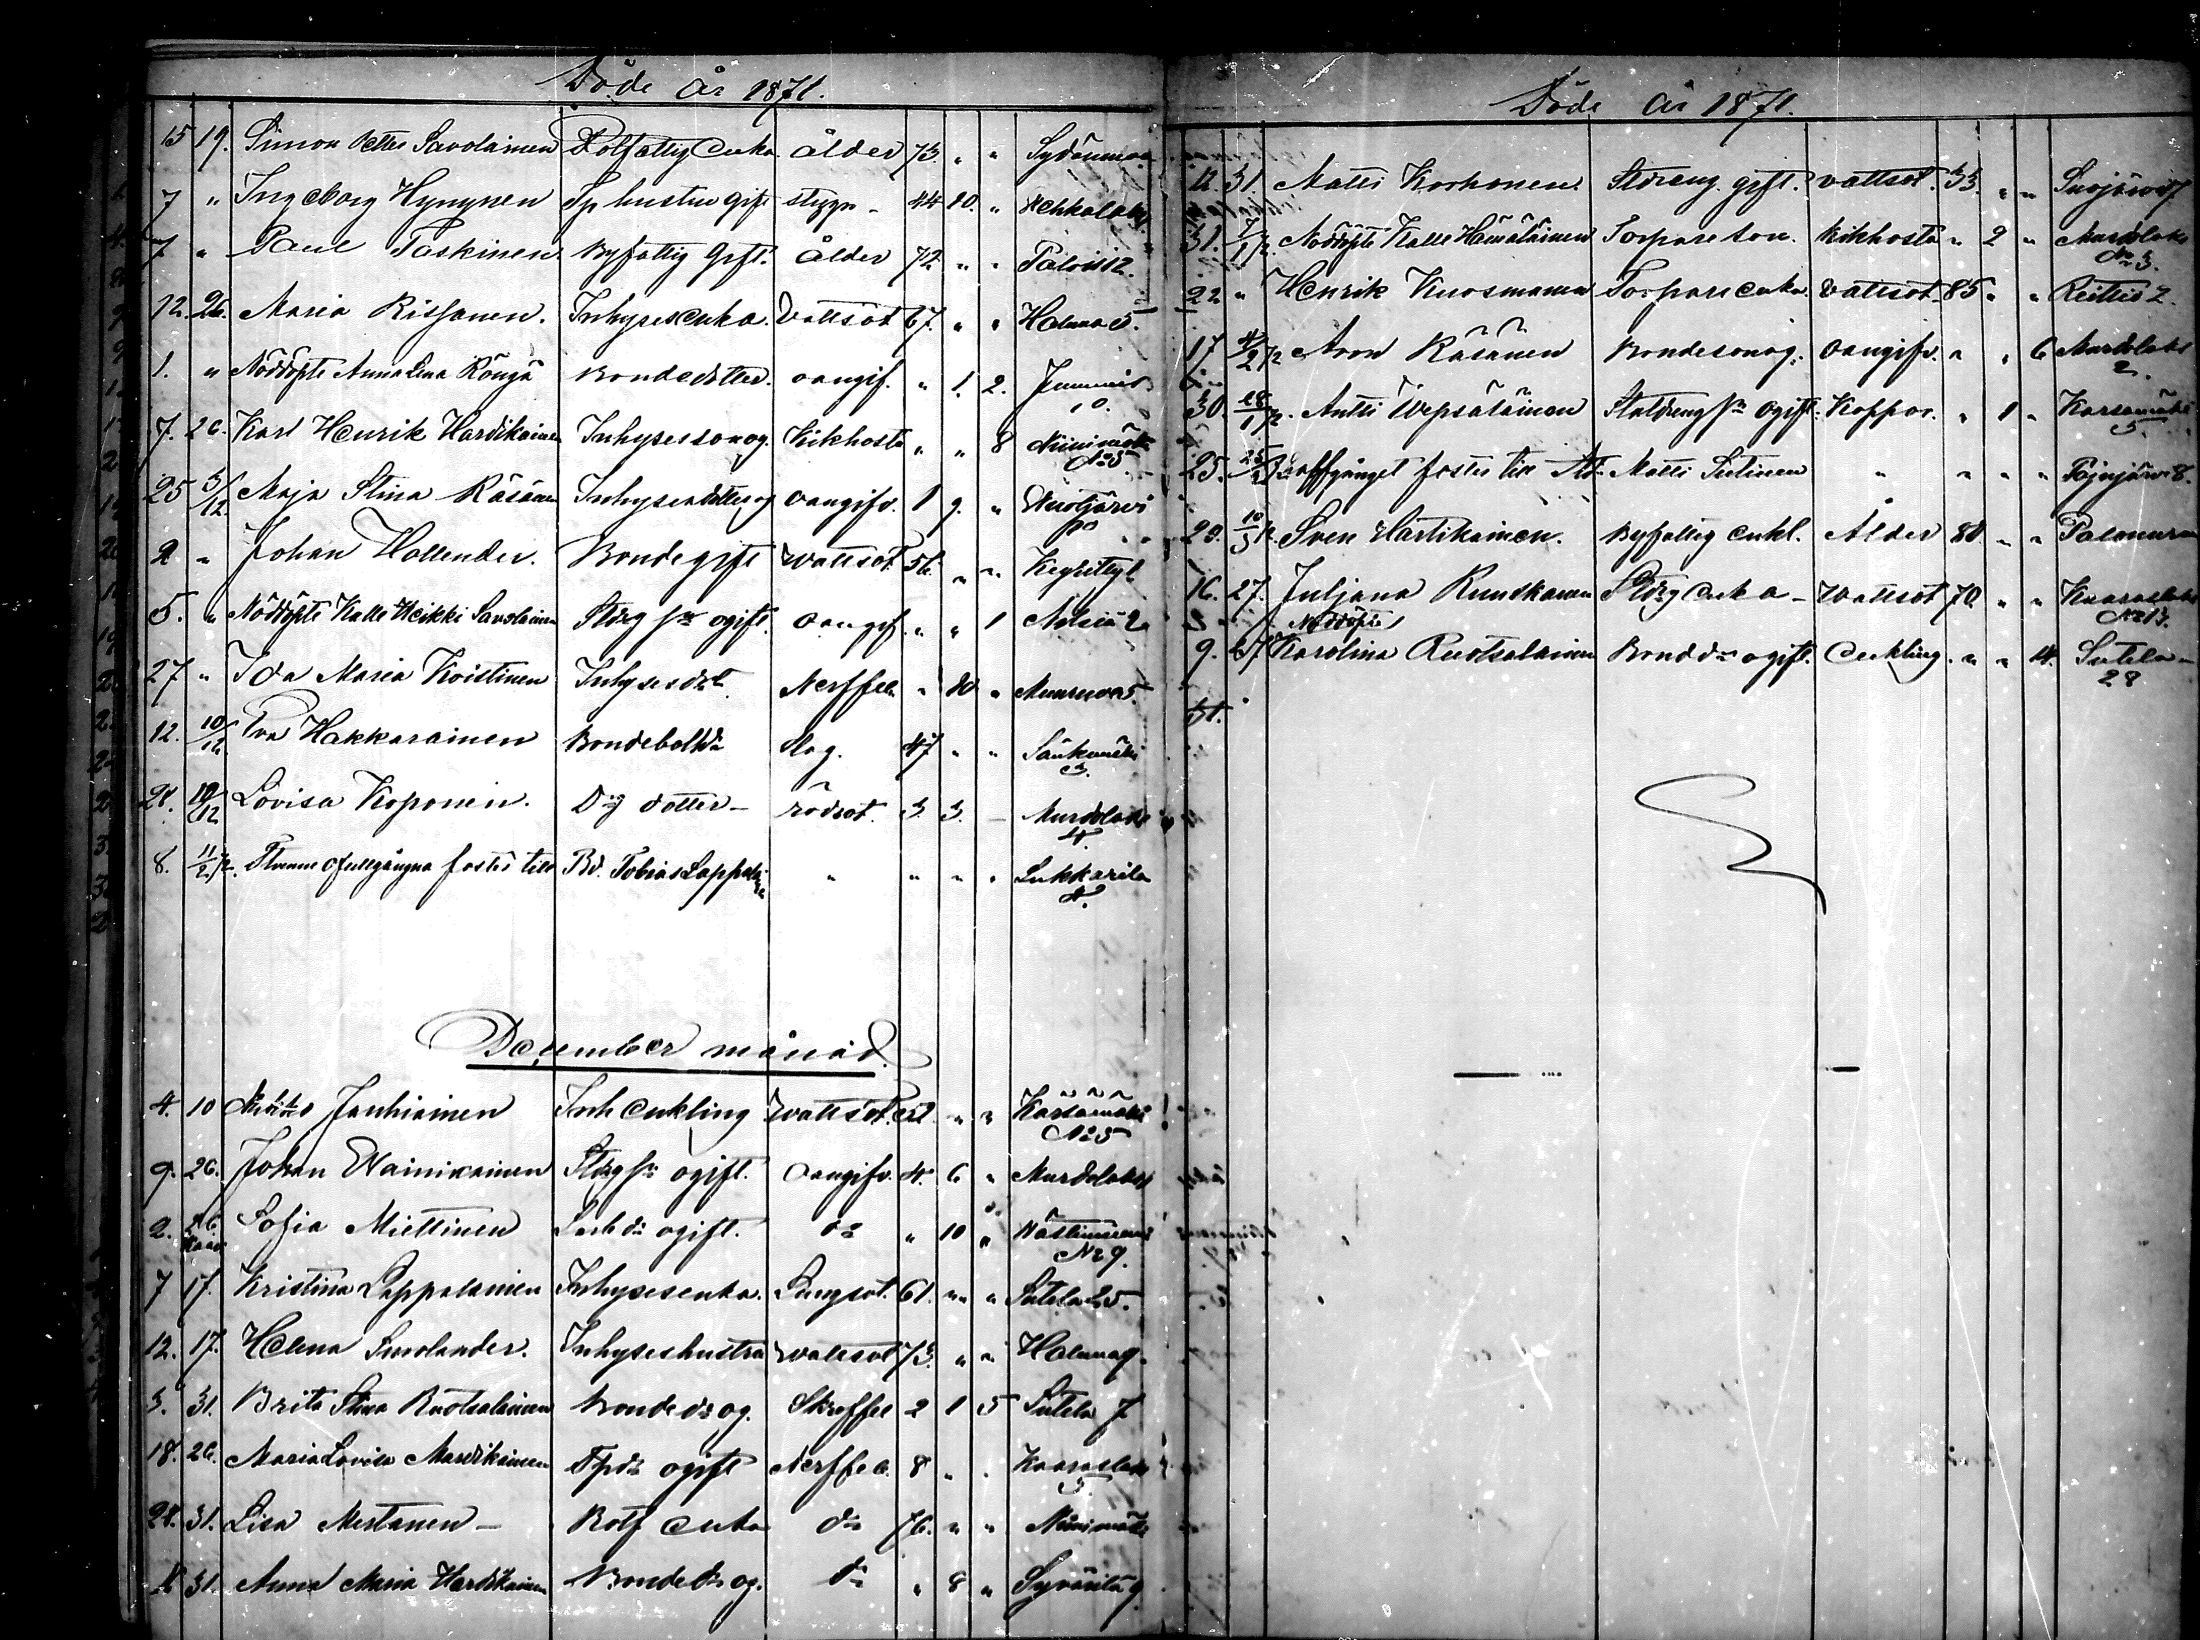 Döde år 1871.
15 19. Simon Petter Savolainen Rotfattig Enka ålder 73 " " Sydänmaa
7 " Ingeborg Hynynen Tp hustru gift stygn - 44 10. " Wehkalaks
7 " Paul Taskinen Byfattig Gift. ålder 72 " " Palois 12.
12. 26. Maria Rissanen. Inhyses enka. Vattsot 67. " " Halma 5.
1. " Nöddöpte Anna Lena Röngä Bondedotter. oangif. " 1. 2.
10.
7. 26. Karl Henrik Hardikainen Inhyses son og. Kikhosta " " 8 Niinimäki
No 5.
25 3/12. Maja Stina Räsänen Inhyses dotter og oangifv. 1 9. "
2 " Johan Hollender. Bonde gift Wattsot. 56. " "
5. " Nöddöpte Kalle Heikki Savolainen Stdrg sn ogift. oangif. " " 1 Nilsiä 2
27 " Ida Maria Koistinen Inhyses dot. Nerffeb. " 10 " Muuruves 5.
12. 10/12 Eva Hakkarainen Bonde slag. 47 " " Sänkimäki
3.
28. 10/12 Lovisa Koponen. Dg dotter - rödsot. 3. 3. - Murdolaks
4.
8. 11/2 72. Tvenne ofullgångna foster till Bd. Tobias Lappalainen " " " " Lukkarila
4.
December månad.
4. 10 Jauhiainen Inh enkling Wattsot. " " Karsamäki
No 5
9. 26. Johan Wainikainen Stdrg sn ogift. Oangifv. 4. 6 " Murdolaks
2. 26 Sofia Miettinen Inh dr ogift. do " 10 " Wästinniemi
No 9.
7 17. Kristina Lappalainen Inhysesenka. Lungsot. 61. " " Sutela 25.
12. 17. Helena Smolander. Inhyseshustru Wattsot 73. " " Halma 9.
3. 31. Brita Stina Ruotsalainen Bonde dr og. Skroffel 2 1 5 Sutela 7
18. 26. Maria Lovisa Mardikainen Tpdr ogift Nerffeb. 8 " . Kaaraslaks
5.
28. 31. Lisa Mertanen - Rotf enka do 76. " " Niinimäki
31. Anna Maria Hardikainen Bonde dr og. do " 8 " Syvärilä 9
Döde år 1871.
12. 31. Matti Korhonen. Stdreng gift. Vattsot. 33. " " Suojärvi 7
31. 7/1 72. Nöddöpte Kalle Hämäläinen Torpare son. Kikhosta " 2 " Murdolaks
No 3.
22 " Henrik Kuosmanen Torpare enka. Vattsot. 85 " " Reittiö 2.
17 4/2 72 Aron Räsänen Bondeson og. oangifv. " " 6 Murdolaks
2.
30. 28/1 72. Antti Wepsäläinen Statdreng sn ogift. Koppor. " 1 " Karsamäki
5
25. Offgånget foster till Matti Sutinen " " " " Pajujärvi 8.
20. 10/3 72 Sven Hartikainen. Byfattig enkl. Ålder 80. " " Palonurm
16. 27. Juljana Ruuskanen Stdrg enka - Wattsot 70. " " Kaaraslaks
No 13.
Nöddöpte
9. 27. Karolina Ruotsalainen Bond dr ogift. Enkling. " " 4. Sutela -
28
31.